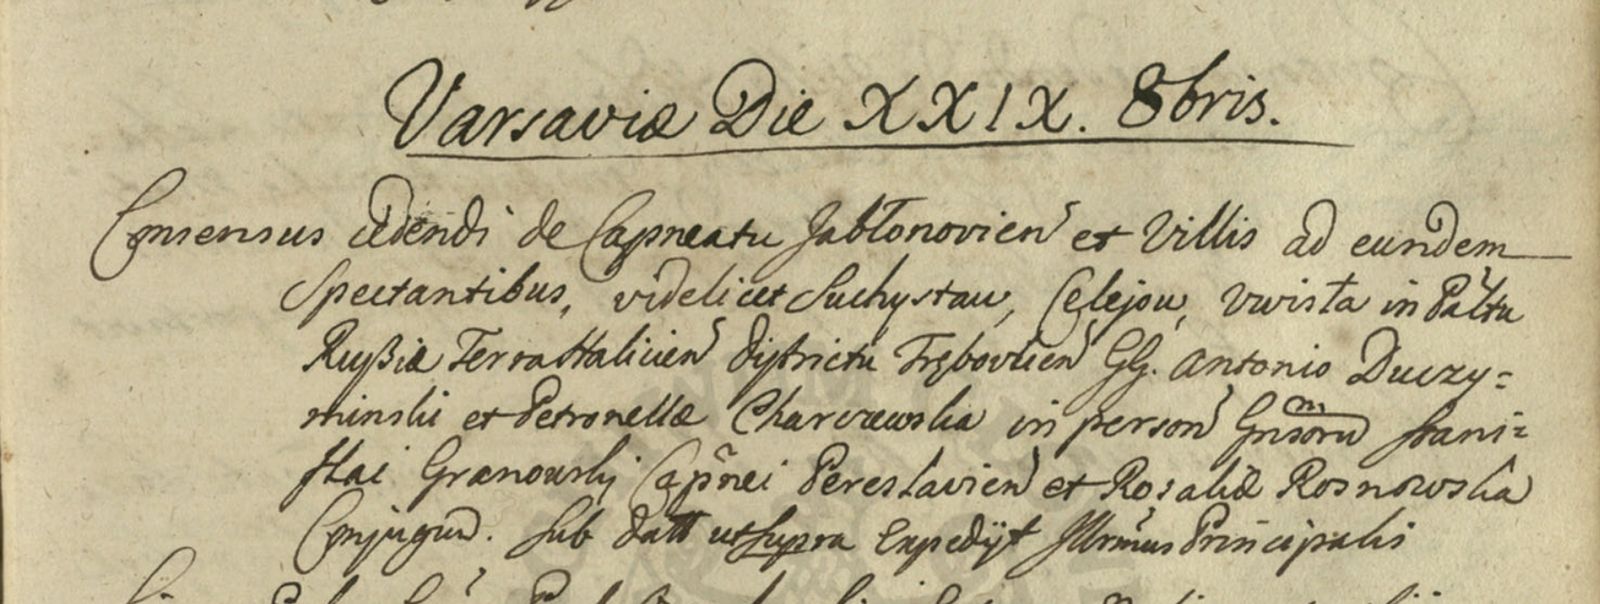 Varsaviæ Die XXIX. 8bris.
Consensus cedendi de Capneatu Jabłonovien et Villis ad eundem
Spectantibus, videlicet Suchystaw, Celejow, Uwisła in Paltu
Rußiæ Terra Halicien districtu Trębovlien GG. Antonio Duczy=
minski et Petronellæ Charczewska in person Gnsoru Stani=
slai Granowskj Capnei Pereslavien et Rosaliæ Rosnowska
Conjugum. Sub datt ut supra Expedijt Illrmus Principalis